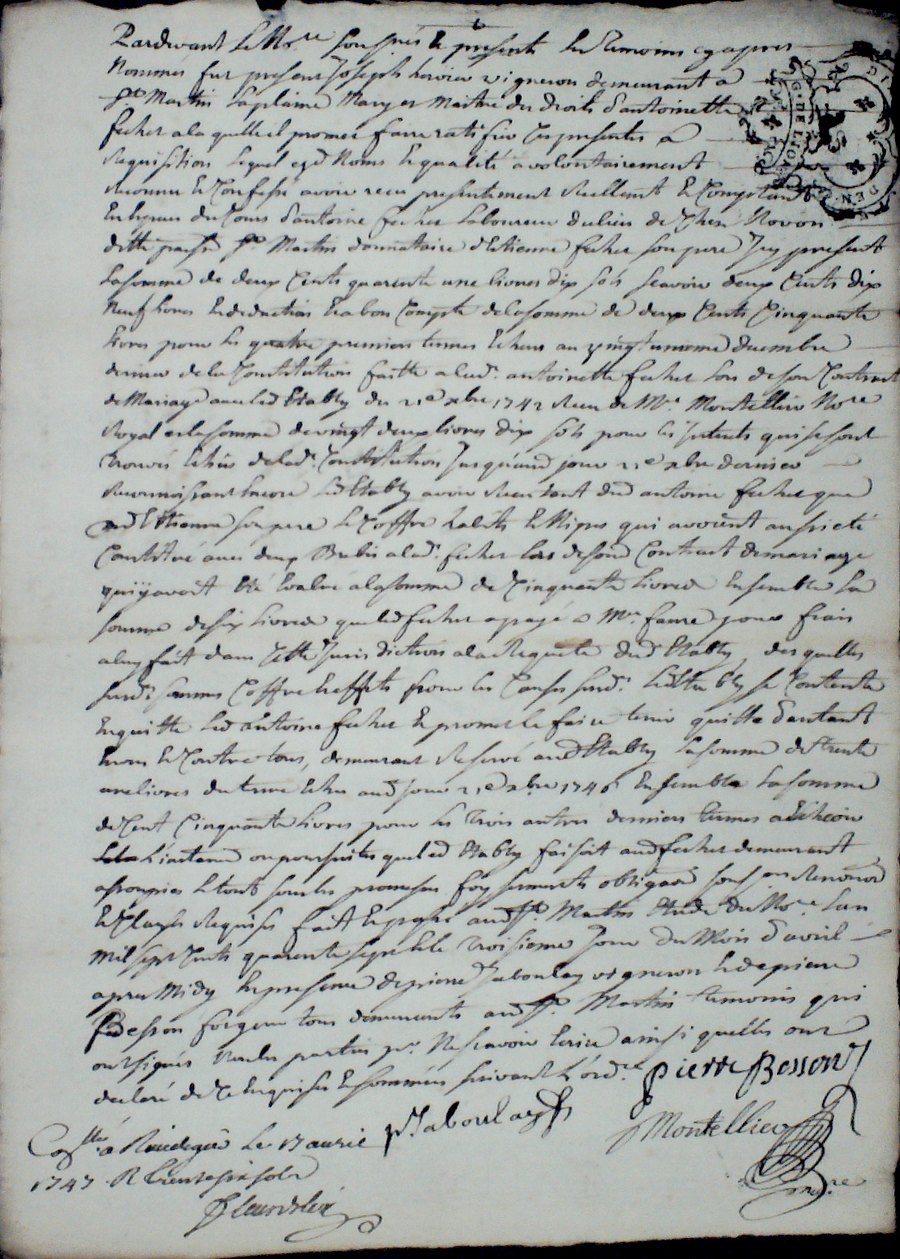 Pardevant le No.re soussignés et présents les Temoins cy apres
Nommés fut present Joseph vigneron demeurant a
st Martin Laplaine Mary et Maitre des droits d'antoinette
fechet a laquelle il promet faire ratifier ces presentes a
Requisition lequel esd Noms et qualité a volontairement
Reconnu et Confessé avoir receu presentement Reellement et Comptant
d'antoine fechet Laboureur du lieu de
ditte parr.e st Martin donnataire d'Etienne fechet son pere Icy present
La somme de deux Cents quarente une livres dix sols scavoir deux Cents dix
Neuf livres En deduction et a bon Compte de la somme de deux Cents Cinquante
livres pour les quatre premiers termes Echeus au vingt unieme decembre
dernier de la Constitution faitte a lad. antoinette fechet Lors de son Contract
de Mariage avec led Etably du 21e xbre 1742 Receu de M.e Montellier No.re
Royal et la somme de vingt deux livres dix sols pour les Interets qui se sont
trouvés Echus de lad. Constitution Jusqu'aud jour 21e xbre dernier
Reconnoissant Encore led Etably avoir Receu tant dud antoine fechet que
dud Etienne son pere le Coffre habits et Nipes qui avoient aussi eté
Constitué avec deux Brebis a lad. fechet lors de sond Contract de mariage
qui avoit été Evalué a la somme de Cinquante livres Ensemble La
somme de six livres que led fechet a payé a M.e faure pour frais
a luy fait dans cette Jurisdiction a la Requete dud Etably, des quelles
susd. sommes Coffre et effets pour les Causes susd. led Etably se Contente
En quitte led antoine fechet et promet le faire tenir quitte d'autant
Envers et Contre tous, demeurant Reservé aud Etably La somme de trente
une livres du terme Echu aud jour 21e xbre 1746 Ensemble La somme
de Cent Cinquante livres pour les trois autres derniers termes a Echeoir
L'instance ou poursuites que led Etably faisoit aud fechet demeurant
assoupies le tout sous les promesses foy serments obligaon soumissions Renonciaon
et Clauses Requises fait et passé aud st Martin Etude du No.re Lan
Mil sept Cents quarente sept et le troisieme Jour du Mois d'avril
apres Midy En presence de pierre Jaboulay vigneron et de pierre
Besson forgeur tous demeurants aud st. Martin temoins qui
ont signés Non les parties p.r Ne scavoir Ecrire ainsi quelles ont
declaré de ce Enquises et sommées suivant L'ord.e
Pierre Besson
pr Jaboulay
Montellier
No.re
Coll.e a Rivedegier Le 17 avril
1747. R trente six sols
fleurdelix